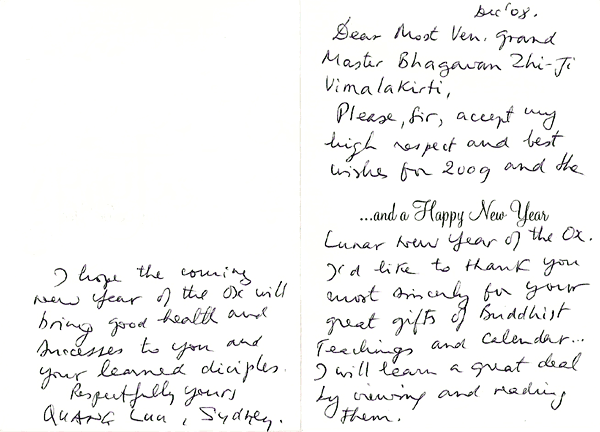 Dec '08.
Dear Most Ven. Grand
Master Bhagawan Zhi-Ji
Vimalakirti,
Please, Sir, accept my
high respect and best
wishes for 2009 and the
...and a Happy New Year
Lunar New Year of the Ox.
I'd like to thank you
most sincerly for your
great gifts of Buddhist
Teachings and Calendar...
I will learn a great deal
by viewing and reading
them.
I hope the coming
new year of the Ox will
bring good health and
successes to you and
your learned diciples.
Respectfully yours
QUANG Luu, Sydney.